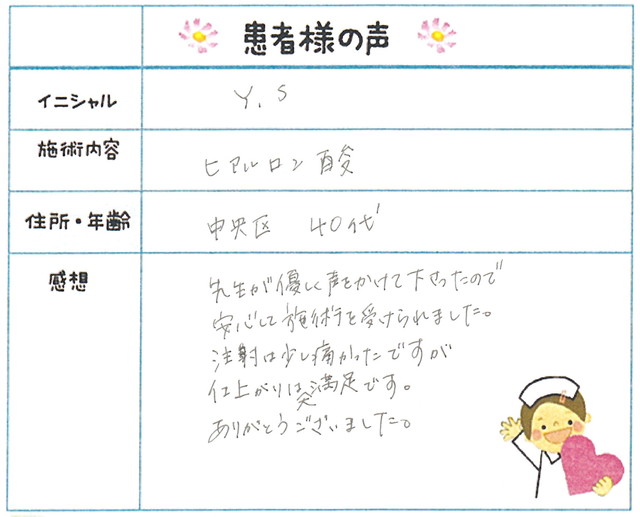 患者様の声
イニシャル Y.S
施術内容 ヒアルロン酸
住所・年齢 中央区 40代
感想 先生が優しく声をかけて下さったので
安心して施術を受けられました。
注射は少し痛かったですが
仕上がりは大満足です。
ありがとうございました。